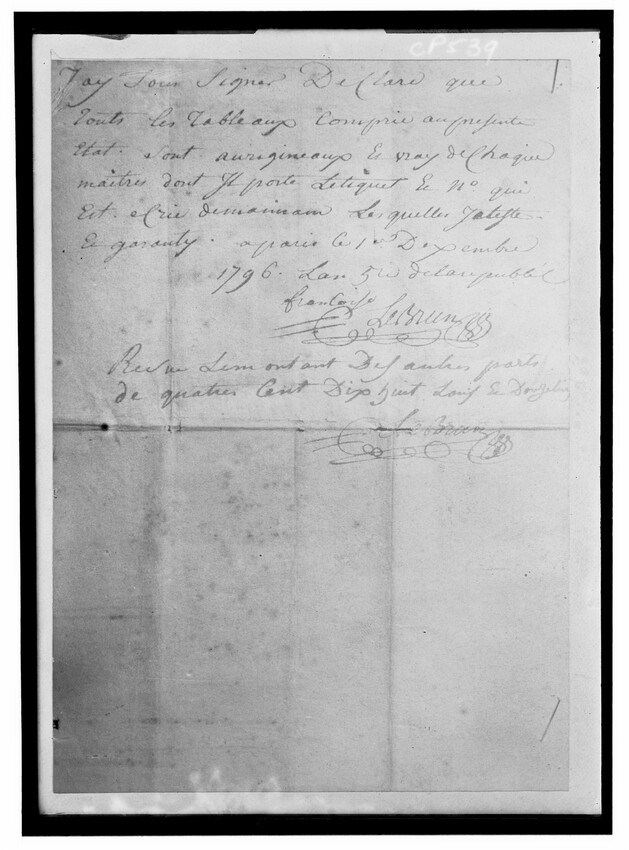 CP539
Jay Sous Signer Declare que
touts les Tableaux Comprie au presente
Etat. sont aurigineaux & vray de Chaque
maitres dont Jl porte Letiquet & No qui
Est ecrie demainam Lesquelles Jateste
& garanty. a paris le 1er Dexembre
1796. Lan 5re de la republiq
francoise
LeBrun
Recue Le montant Des autres parts
de quatres Cent Dix huit Louis & Douze
LeBrun